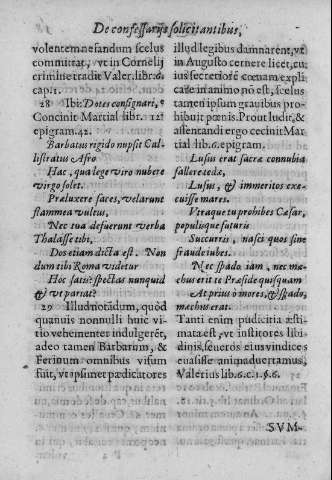 De confessarijs solicitantibus,
volentem nefandum scelus
committat, vt in Cornelij
crimine tradit Valer. lib. 6.
cap. 1.
28 Ibi: Dotes consignari,
Concinit Martial libr. 12
epigram. 42.
Barbatus rigido nupsit Cal-
listratus Afro
Hac, qua lege viro nubere
virgo solet.
Præluxere faces, velarunt
flammea vultus,
Nec tua defuerunt verba
Thalasse tibi,
Dos etiam dicta est. Non
dum tibi Roma videtur
Hoc satis? spectas nunquid
& vt pariat?
29 Illud notādum, quòd
quamuis nonnulli huic vi-
tio vehementer indulgerēt,
adeo tamen Barbarum, &
Ferinum omnibus visum
fuit, vt ipsimet pædicatores
illud legibus damnarent, vt
in Augusto cernere licet, cu
ius secretiorē cœnam expli
care in animo nō est, scelus
tamen ipsum grauibus pro-
hibuit pœnis. Prout ludit, &
assentandi ergo cecinit Mar
tial lib. 6. epigram.
Lusus erat sacræ connubia
fallere tedæ,
Lusus, & immeritos exe-
cuisse mares.
Vtraque tu prohibes Cæsar,
populisque futuris
Succurris, nasci quos sine
fraude iubes.
Nec spado iam, nec mæ-
chus erit te Præside quisquam
At prius ò mores, & spado,
mœchus erat.
Tanti enim pudicitia æsti-
mata est, vt institores libi-
dinis, seueros eius vindices
euasisse animaduertamus,
Valerius lib. 6. c. 1. §. 6.
SVM-